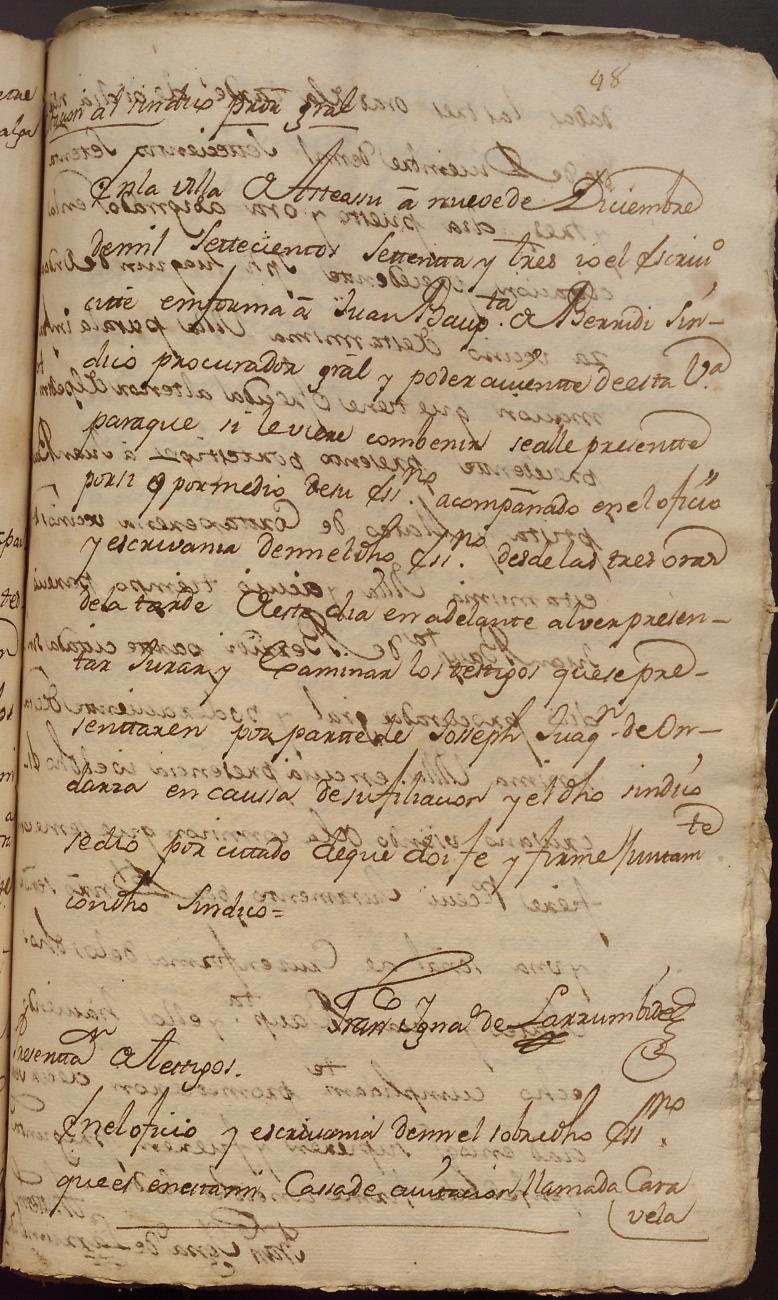 48
al sindico pror gral
En la villa de Asteasu â nueve de Diciembre
de mil Settecientos Settentta y tres io el Escriuo
citte en forma â Juan Baupta. de Berridi Sin-
dico procurador gral y poder auiente de esta Va.
para que si le viere combenir se alle presentte
por si o por medio de su essno. acompañado en el oficio
y escrivania de mi el dho essno. desde las tres oras
de la tarde de este dia en adelante al ver presen-
tar Jurar y Examinar los testigos que se pre-
senttaren por partte de Josseph Juaqn. de On-
darza en caussa de su filiacion y el dho sindico
se dio por cittado de que doi fe y firme Juntamte
con dho Sindico=
Fran Igna de Larrumbide
Presentta de testigos.
En el oficio y escrivania de mi el sobre dho essno.
que es en esta mi Cassa de auitacion llamada Cara
vela